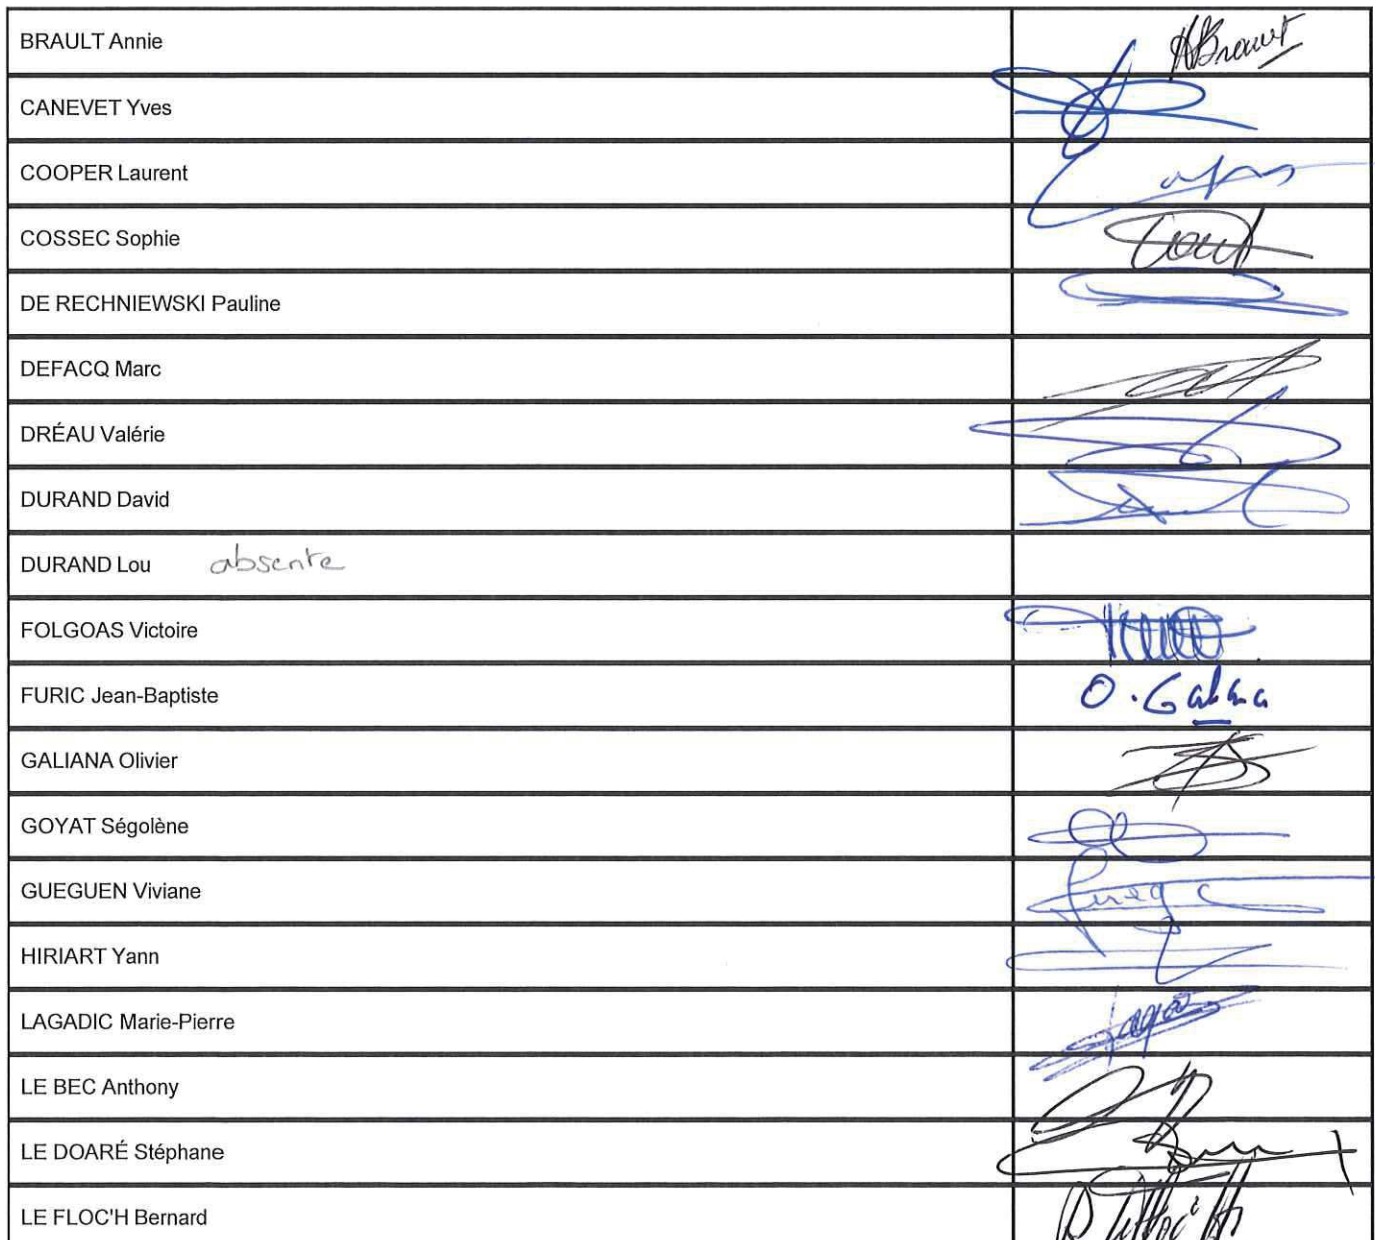 BRAULT Annie
CANEVET Yves
COOPER Laurent
COSSEC Sophie
DE RECHNIEWSKI Pauline
DEFACQ Marc
DRÉAU Valérie
DURAND David
DURAND Lou absente
FOLGOAS Victoire
FURIC Jean-Baptiste O. Galiana
GALIANA Olivier
GOYAT Ségolène
GUEGUEN Viviane
HIRIART Yann
LAGADIC Marie-Pierre
LE BEC Anthony
LE DOARÉ Stéphane
LE FLOC'H Bernard